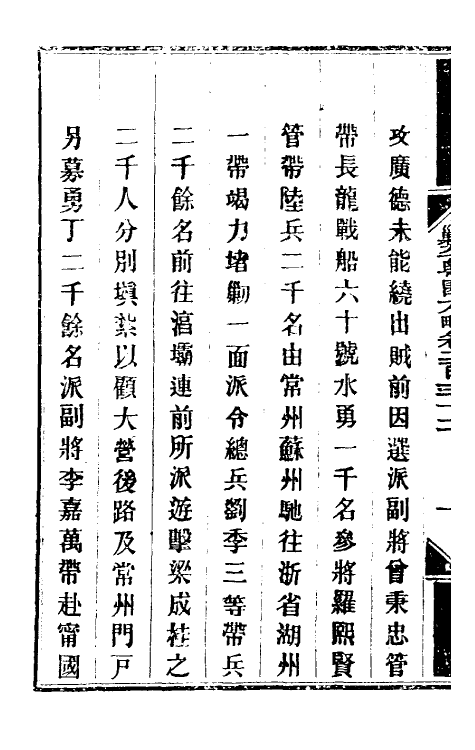 攻廣德未能繞出賊前因選派副將曾秉忠管
帶長龍戰船六十號水勇一千名參將羅熙賢
管帶陸兵二千名由常州蘇州馳往浙省湖州
一帶竭力堵勦一面派令總兵劉季三等帶兵
二千餘名前往湻壩連前所派遊擊梁成桂之
二千人分別塡紥以顧大營後路及常州門戸
另募勇丁二千餘名派副將李嘉萬帶赴甯國